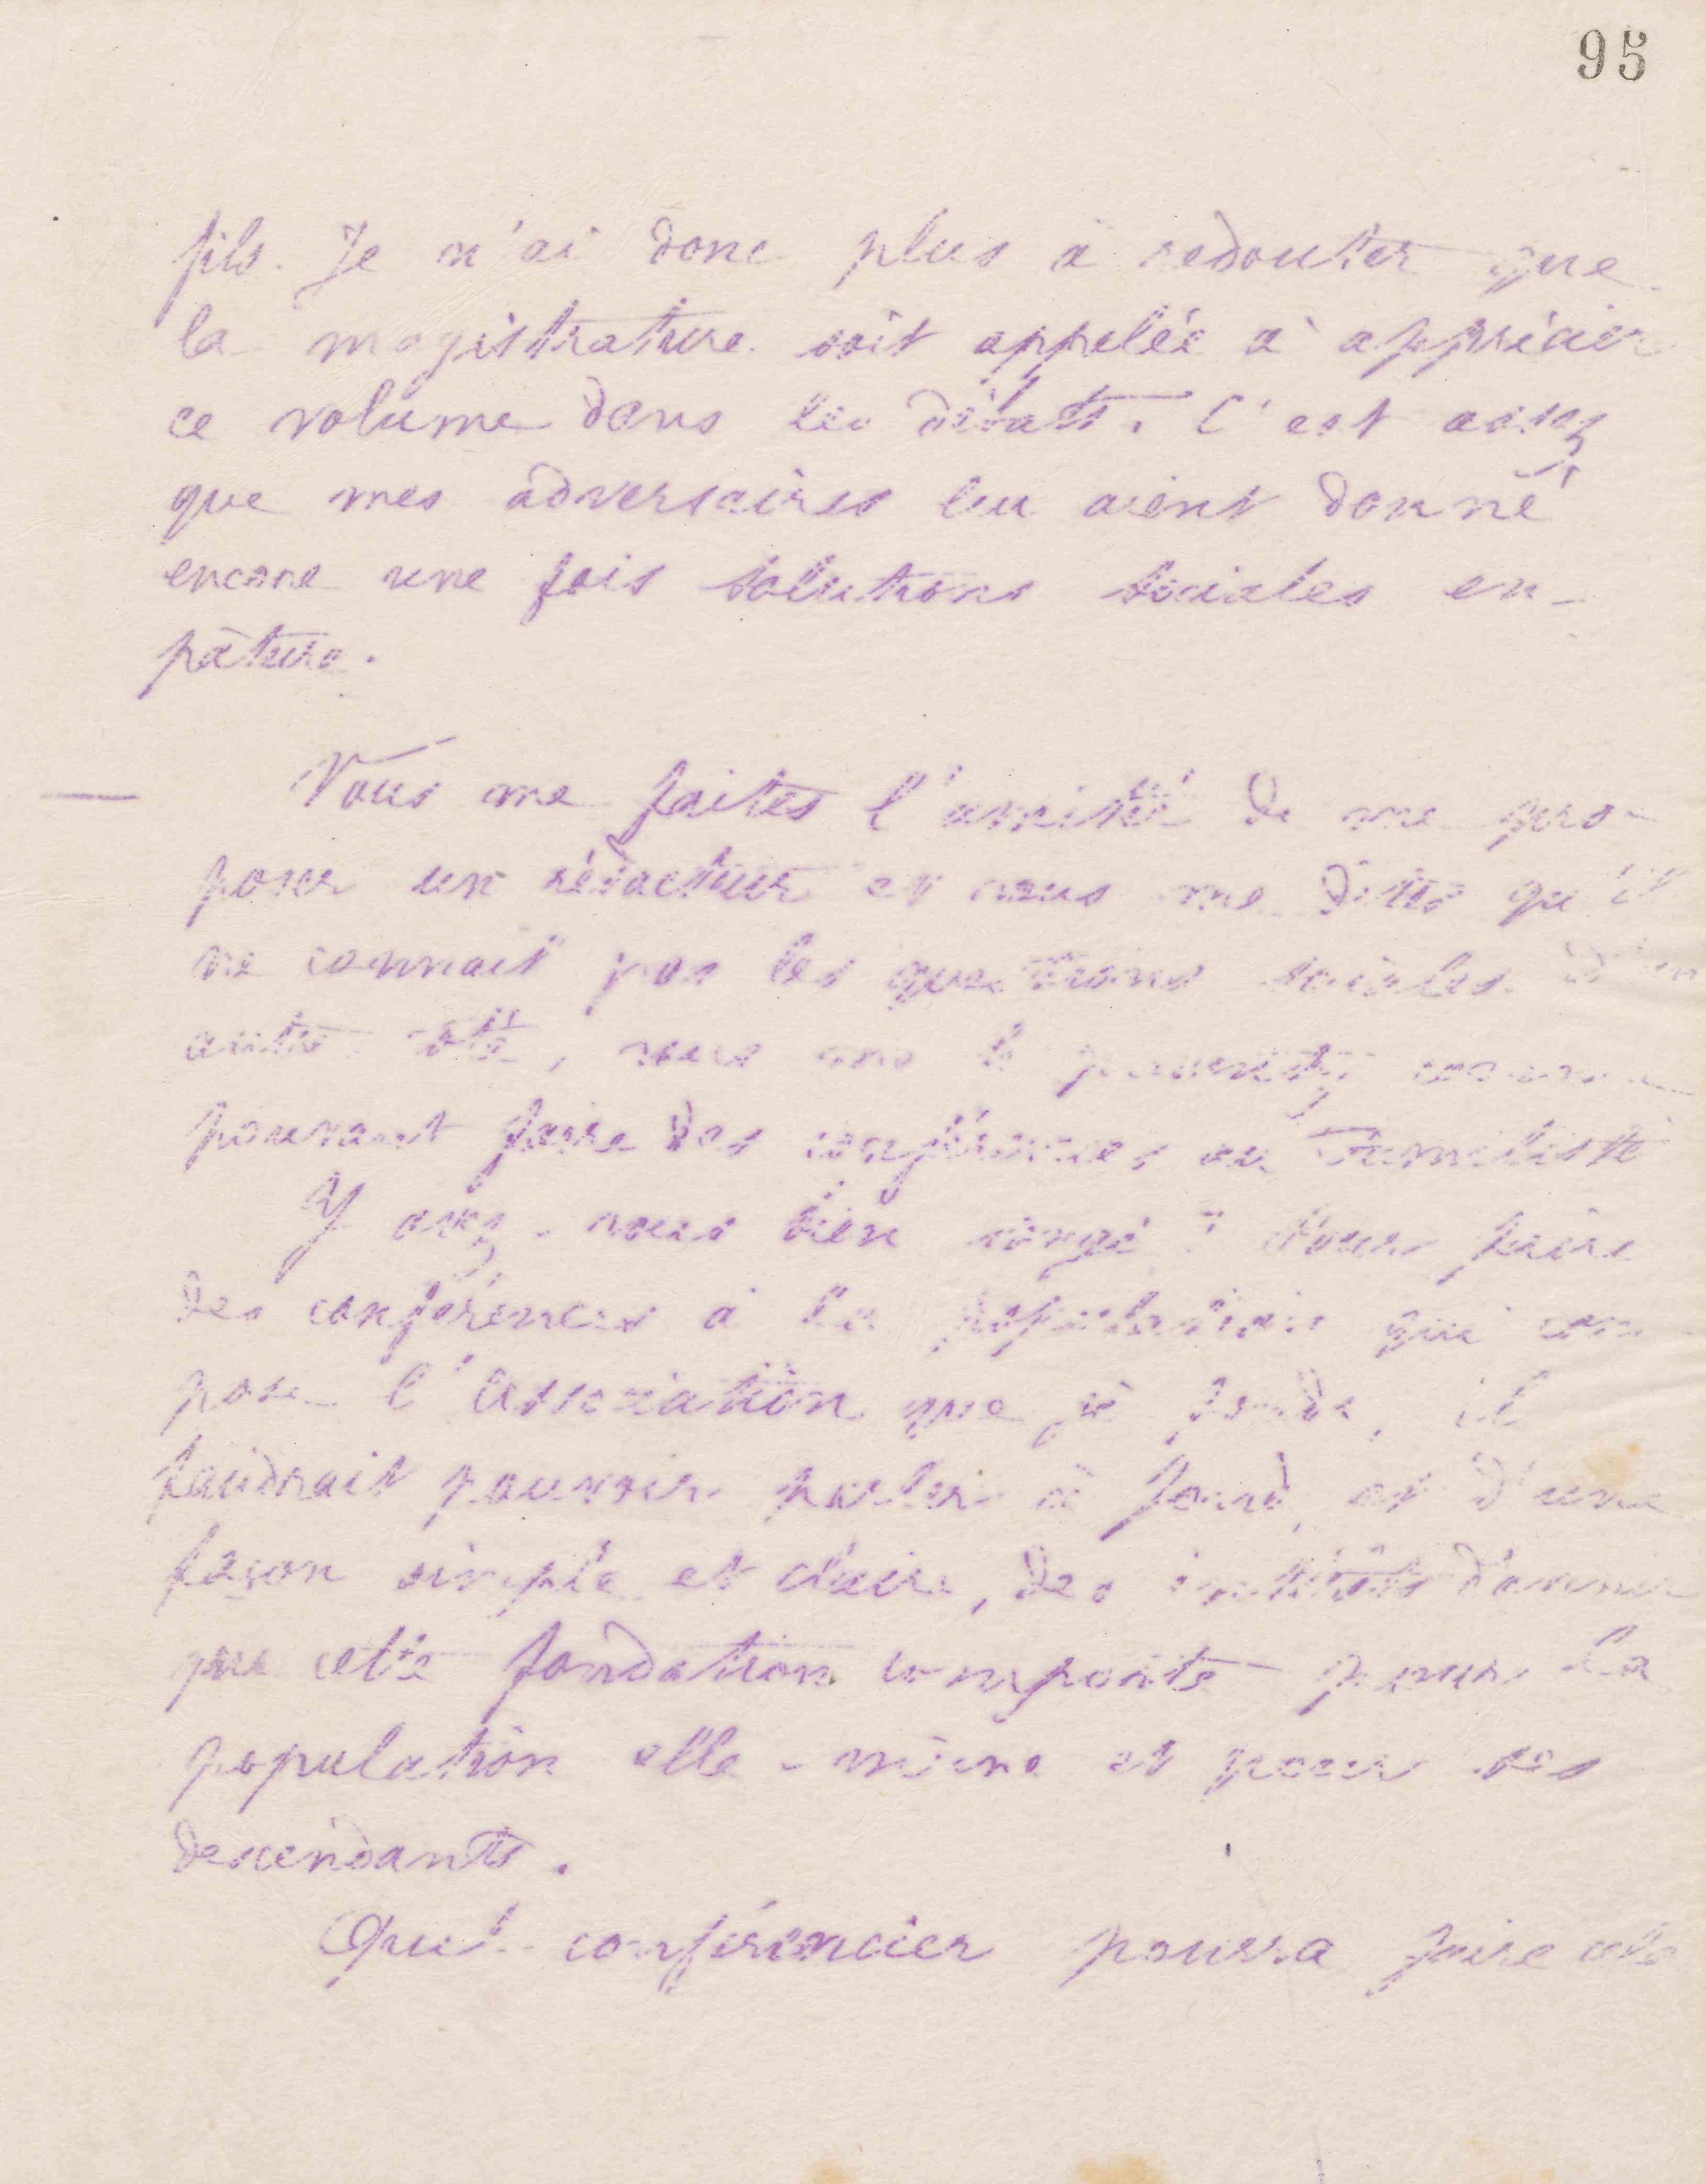 95
fils. Je n'ai donc plus à redouter que
la magistrature soit appelée à apprécier
ce volume dans les débats. C'est assez
que mes adversaires lui aient donné
encore une fois solutions sociales en
pâture.
— Vous me faites l'amitié de me pro-
poser un rédacteur et vous me dites qu'il
ne connait pas les questions sociales. D'un
autre côté, vous me le présentez comme
pouvant faire des conférences au Familistère
Y avez-vous bien songé ? Pour faire
des conférences à la population qui com
pose l'association que je fonde, il
faudrait pouvoir parler à fond, et d'une
façon simple et claire, des intérêts d'avenir
que cette fondation comporte pour la
population elle-même et pour ses
descendants.
Quel conférencier pourra faire cela